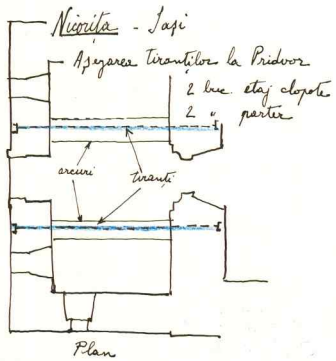 Nicorița - Iași
Așezarea tiranților la Pridvor
2 buc. etaj clopote
2 " parter
arcuri
tiranți
Plan